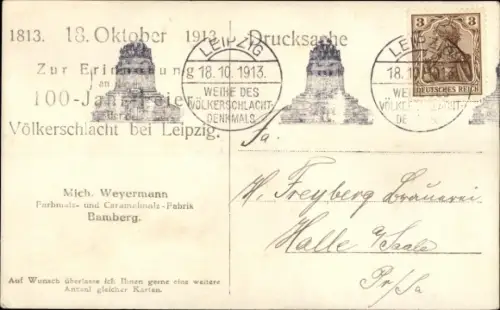 1813. 18. Oktober 1913. Drucksache
Zur Erinnerung
an die
100-Jahrfeier
der
Völkerschlacht bei Leipzig.
LEIPZIG
18.10.1913.
WEIHE DES
VÖLKERSCHLACHT-
DENKMALS
3 3
DEUTSCHES REICH
LEIPZIG
18.10.1913.
WEIHE DES
Fa.
W. Freyberg Brauerei
Halle a/Saale
Pr/Sa
Mich. Weyermann
Farbmalz- und Caramelmalz-Fabrik
Bamberg.
Auf Wunsch überlasse ich Ihnen gerne eine weitere
Anzahl gleicher Karten.